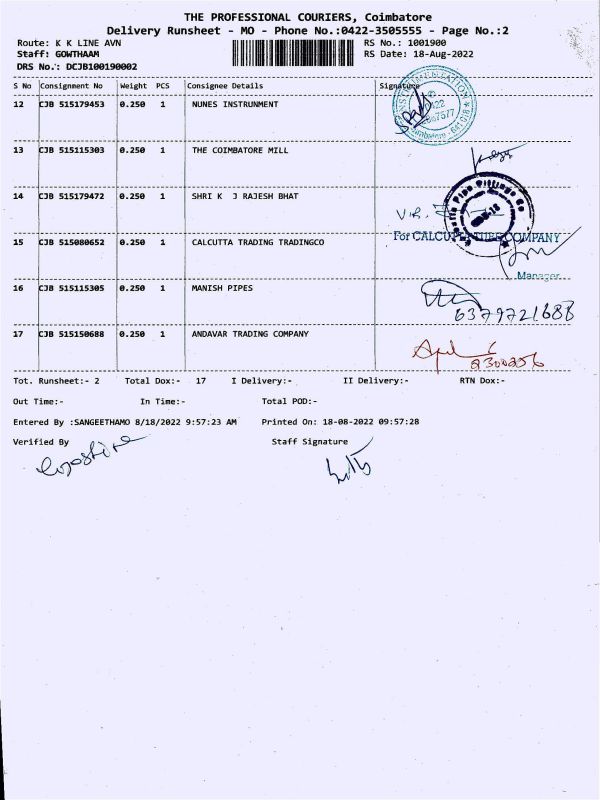 THE PROFESSIONAL COURIERS, Coimbatore
Delivery Runsheet - MO - Phone No.:0422-3505555 - Page No.:2
Route: K K LINE AVN
RS No.: 1001900
Staff: GOWTHAAM
RS Date: 18-Aug-2022
DRS No.: DCJB100190002
S No Consignment No Weight PCS Consignee Details Signature
12 CJB 515179453 0.250 1 NUNES INSTRUNMENT
13 CJB 515115303 0.250 1 THE COIMBATORE MILL
14 CJB 515179472 0.250 1 SHRI K J RAJESH BHAT
15 CJB 515080652 0.250 1 CALCUTTA TRADING TRADINGCO
For COMPANY
Manager
16 CJB 515115305 0.250 1 MANISH PIPES
6379721688
17 CJB 515150688 0.250 1 ANDAVAR TRADING COMPANY
Tot. Runsheet:- 2 Total Dox:- 17 I Delivery:- II Delivery:- RTN Dox:-
Out Time:- In Time:- Total POD:-
Entered By :SANGEETHAMO 8/18/2022 9:57:23 AM Printed On: 18-08-2022 09:57:28
Verified By Staff Signature